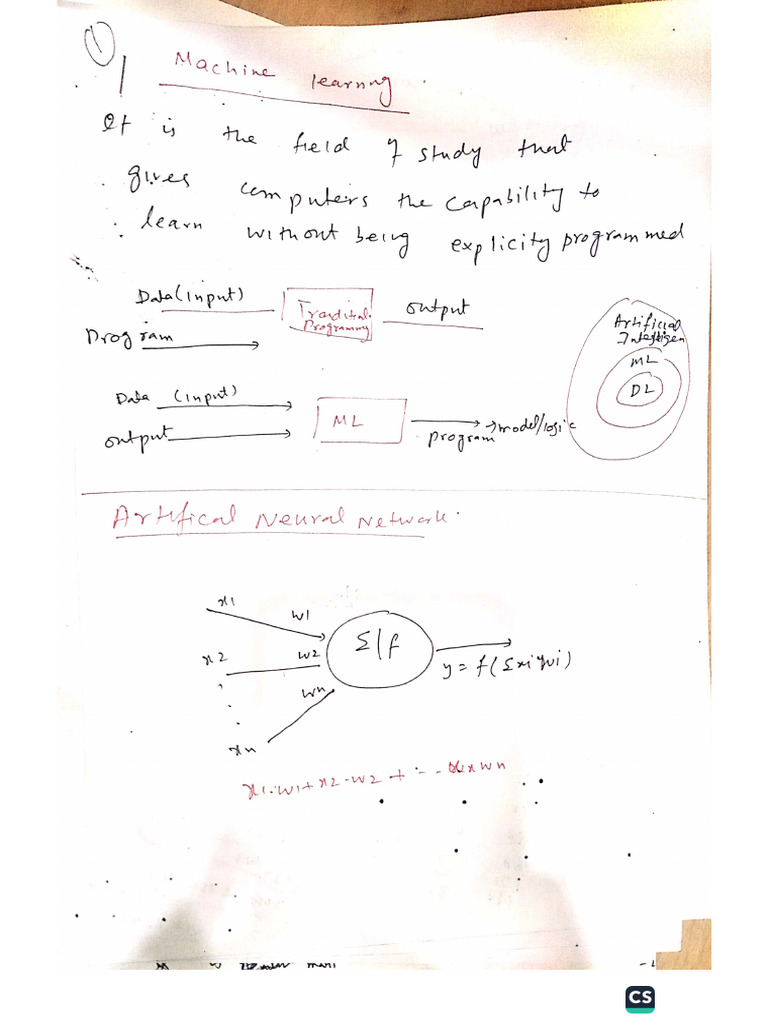 1
Machine learning.
It is the field of study that
gives computers the capability to
learn without being explicity programmed
Data (input)
Traditional Programming
output
Program
Artificial
ML
DL
Data (input)
output
ML
program → model/logic
Artifical Neural Network.
x1
w1
x2
w2
wn
xn
Σ|f
y = f(Σxi*wi)
x1.w1+x2.w2 + - - wn
CS